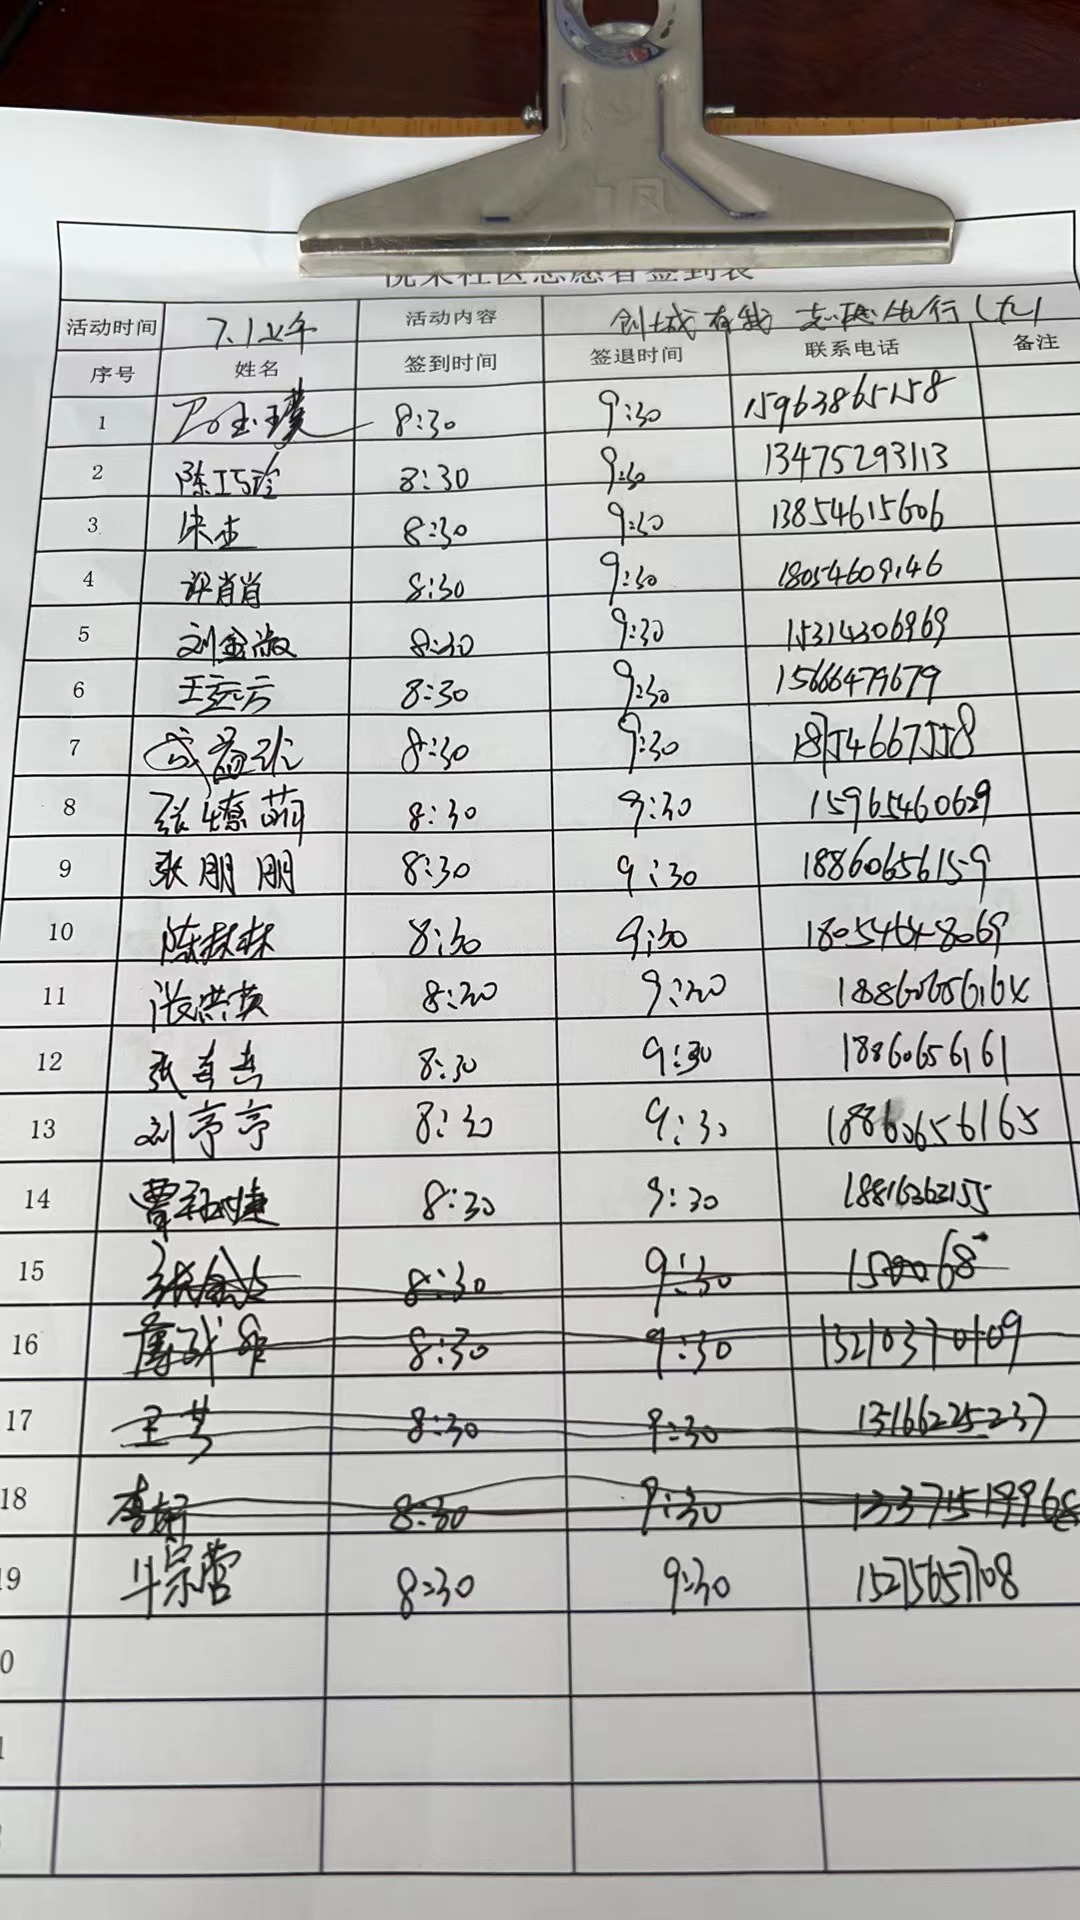 社区志愿者签到表
活动时间 7.1上午 活动内容 创城有我 志愿先行(九)
序号 姓名 签到时间 签退时间 联系电话 备注
1 8:30 9:30 15963865158
2 陈巧玲 8:30 9:30 13475293113
3 8:30 9:30 13854615606
4 许肖肖 8:30 9:30 18054609146
5 刘金微 8:30 9:30 15314306969
6 8:30 9:30 15666479679
7 8:30 9:30 18554667558
8 张 萌 8:30 9:30 15965460629
9 张朋朋 8:30 9:30 18860656159
10 陈林林 8:30 9:30 18054648069
11 张洪英 8:30 9:30
12 张 8:30 9:30 18860656161
13 刘亭亭 8:30 9:30 18860656165
14 曹 婕 8:30 9:30 18816363155
15 8:30 9:30
16 8:30 9:30 15210370109
17 王芳 8:30 9:30 13166225237
18 李妍 8:30 9:30 13371519968
19 宗营 8:30 9:30 15275657708